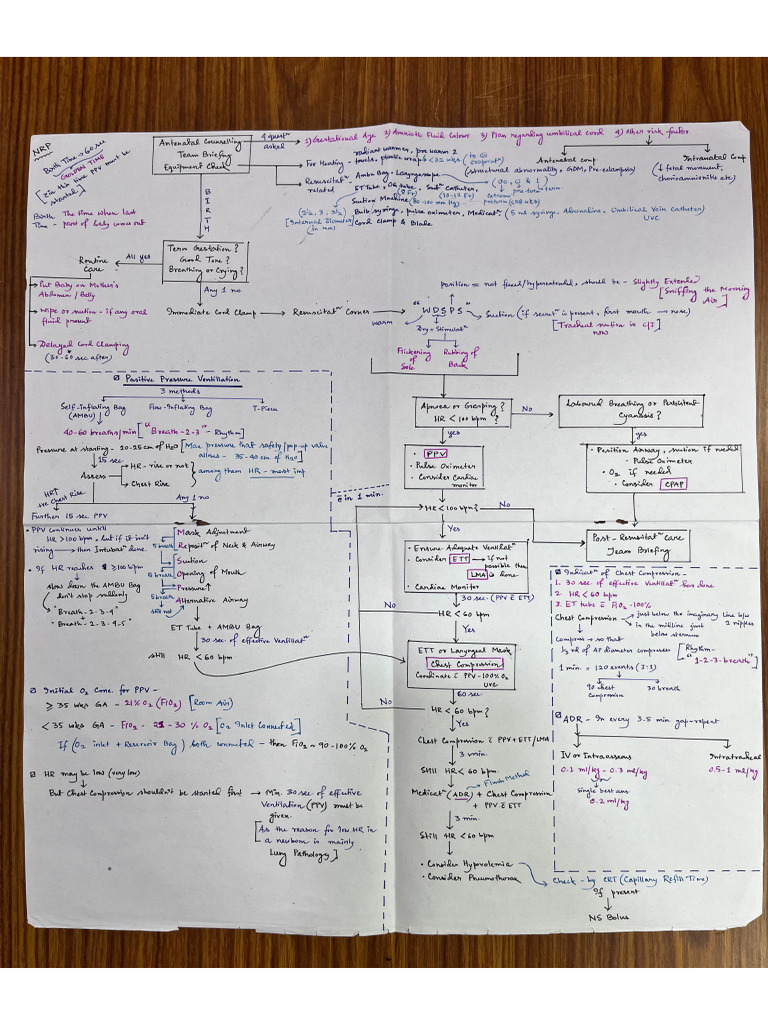 NRP
Birth Time → 60 sec
GOLDEN TIME
[c̄in this time PPV must be started]
Birth Time - The time when last part of baby comes out
Antenatal Counselling
Team Briefing
Equipment Check
4 questⁿ asked
1) Gestational Age 2) Amniotic Fluid Colour 3) Plan regarding umbilical cord 4) Other risk factor
Antenatal comp
(structural abnormality, GDM, Pre-eclampsia)
Intranatal Comp
(↓ fetal movement, chorioamnionitis etc)
For Heating - radiant warmer, pre warm 2 towels, plastic wraps <32 wks.
Resuscitatⁿ related
Ambu Bag, Laryngoscope (00, 0 & 1)
preterm
term
ET Tube, OG tube, Suctⁿ Catheter,
(8 Fr) (10-12 Fr)
(2½, 3, 3½)
[Internal diameter (in mm)]
Suction Machine (80-100 mm Hg)
Bulb syringe, pulse oximeter, Medicatⁿ (5 ml syringe, Adrenaline, Umbilical Vein Catheter)
UVC
Cord Clamp & Blade
BIRTH
Term Gestation?
Good Tone?
Breathing or Crying?
All yes
Routine Care
Put Baby on Mother's Abdomen / Belly
Wipe or suction - if any oral fluid present
Delayed Cord Clamping
(30-60 sec after)
Any 1 no
Immediate Cord Clamp → Resuscitatⁿ Corner → "WDSPS"
Position = not flexed/hyperextended, should be - Slightly Extended
[Sniffing the Morning Air]
Suction (if secretⁿ is present, first mouth → nose)
[Tracheal suction is C/I now]
warm
Dry + Stimulatⁿ
Flickering of Sole
Rubbing of Back
Apnoea or Gasping?
HR < 100 bpm?
No
Laboured Breathing or Persistent Cyanosis?
yes
yes
• PPV
• Pulse Oximeter
• Consider Cardiac monitor
• Position Airway, suction if needed
• Pulse Oximeter
• O₂ if needed
• Consider CPAP
c̄in 1 min.
HR < 100 bpm?
No
Post-Resuscitatⁿ Care
Team Briefing
Yes
• Ensure Adequate Ventilatⁿ
• Consider ETT → if not possible then LMA is done
• Cardiac Monitor
30 sec. (PPV c̄ ETT)
HR < 60 bpm
No
Yes
ETT or Laryngeal Mask
Chest Compression
Coordinate c̄ PPV-100% O₂
UVC
60 sec
HR < 60 bpm?
No
Yes
Chest Compression c̄ PPV + ETT/LMA
3 min.
Still HR < 60 bpm
Flush Method
Medicatⁿ (ADR) + Chest Compression + PPV c̄ ETT
3 min.
Still HR < 60 bpm
• Consider Hypovolemia
• Consider Pneumothorax
Check - by CRT (Capillary Refill Time)
If present
NS Bolus
Positive Pressure Ventilation
3 methods
Self-inflating Bag (AMBU)
Flow-Inflating Bag
T-Piece
40-60 breaths/min ["Breath-2-3" - Rhythm]
Pressure at starting - 20-25 cm of H₂O [Max pressure that safety/pop-up valve allows - 35-40 cm of H₂O]
15 sec
Assess
HR - rise or not
Chest Rise
among them HR - most imp
HR↑ +ve Chest Rise
Any 1 no
Further 15 sec PPV
Mask Adjustment
Repositⁿ of Neck & Airway
5 breath
Suction
Opening of Mouth
5 breath
Pressure↑
5 breath
still not
Alternative Airway
• PPV continues untill HR > 100 bpm, but if it isn't rising → then Intubatⁿ done.
• If HR reaches ≥100 bpm
slow down the AMBU Bag
don't stop suddenly
"Breath-2-3-4"
"Breath-2-3-4-5"
ET Tube + AMBU Bag
30 sec of effective Ventilatⁿ
still HR < 60 bpm
Initial O₂ Conc. for PPV -
≥ 35 wks GA - 21% O₂ (FiO₂) [Room Air]
< 35 wks GA - FiO₂ - 21-30% O₂ [O₂ Inlet Connected]
If (O₂ inlet + Reservoir Bag) both connected - then FiO₂ ~ 90-100% O₂
HR may be low (very low)
But Chest Compression shouldn't be started first → Min. 30 sec of effective Ventilation (PPV) must be given.
[As the reason for low HR in a newborn is mainly Lung Pathology]
Indicatⁿ of Chest Compression -
1. 30 sec of effective Ventilatⁿ has done
2. HR < 60 bpm
3. ET tube c̄ FiO₂ - 100%
Chest Compression
just below the imaginary line b/w 2 nipples
in the midline just below sternum
Compress → so that ⅓ rd of AP diameter compresses
[Rhythm - "1-2-3-breath"]
1 min. = 120 events (3:1)
90 chest compression
30 breath
ADR - In every 3-5 min gap - repeat
IV or Intraosseous
0.1 ml/kg - 0.3 ml/kg
Single best ans
0.2 ml/kg
Intratracheal
0.5-1 ml/kg